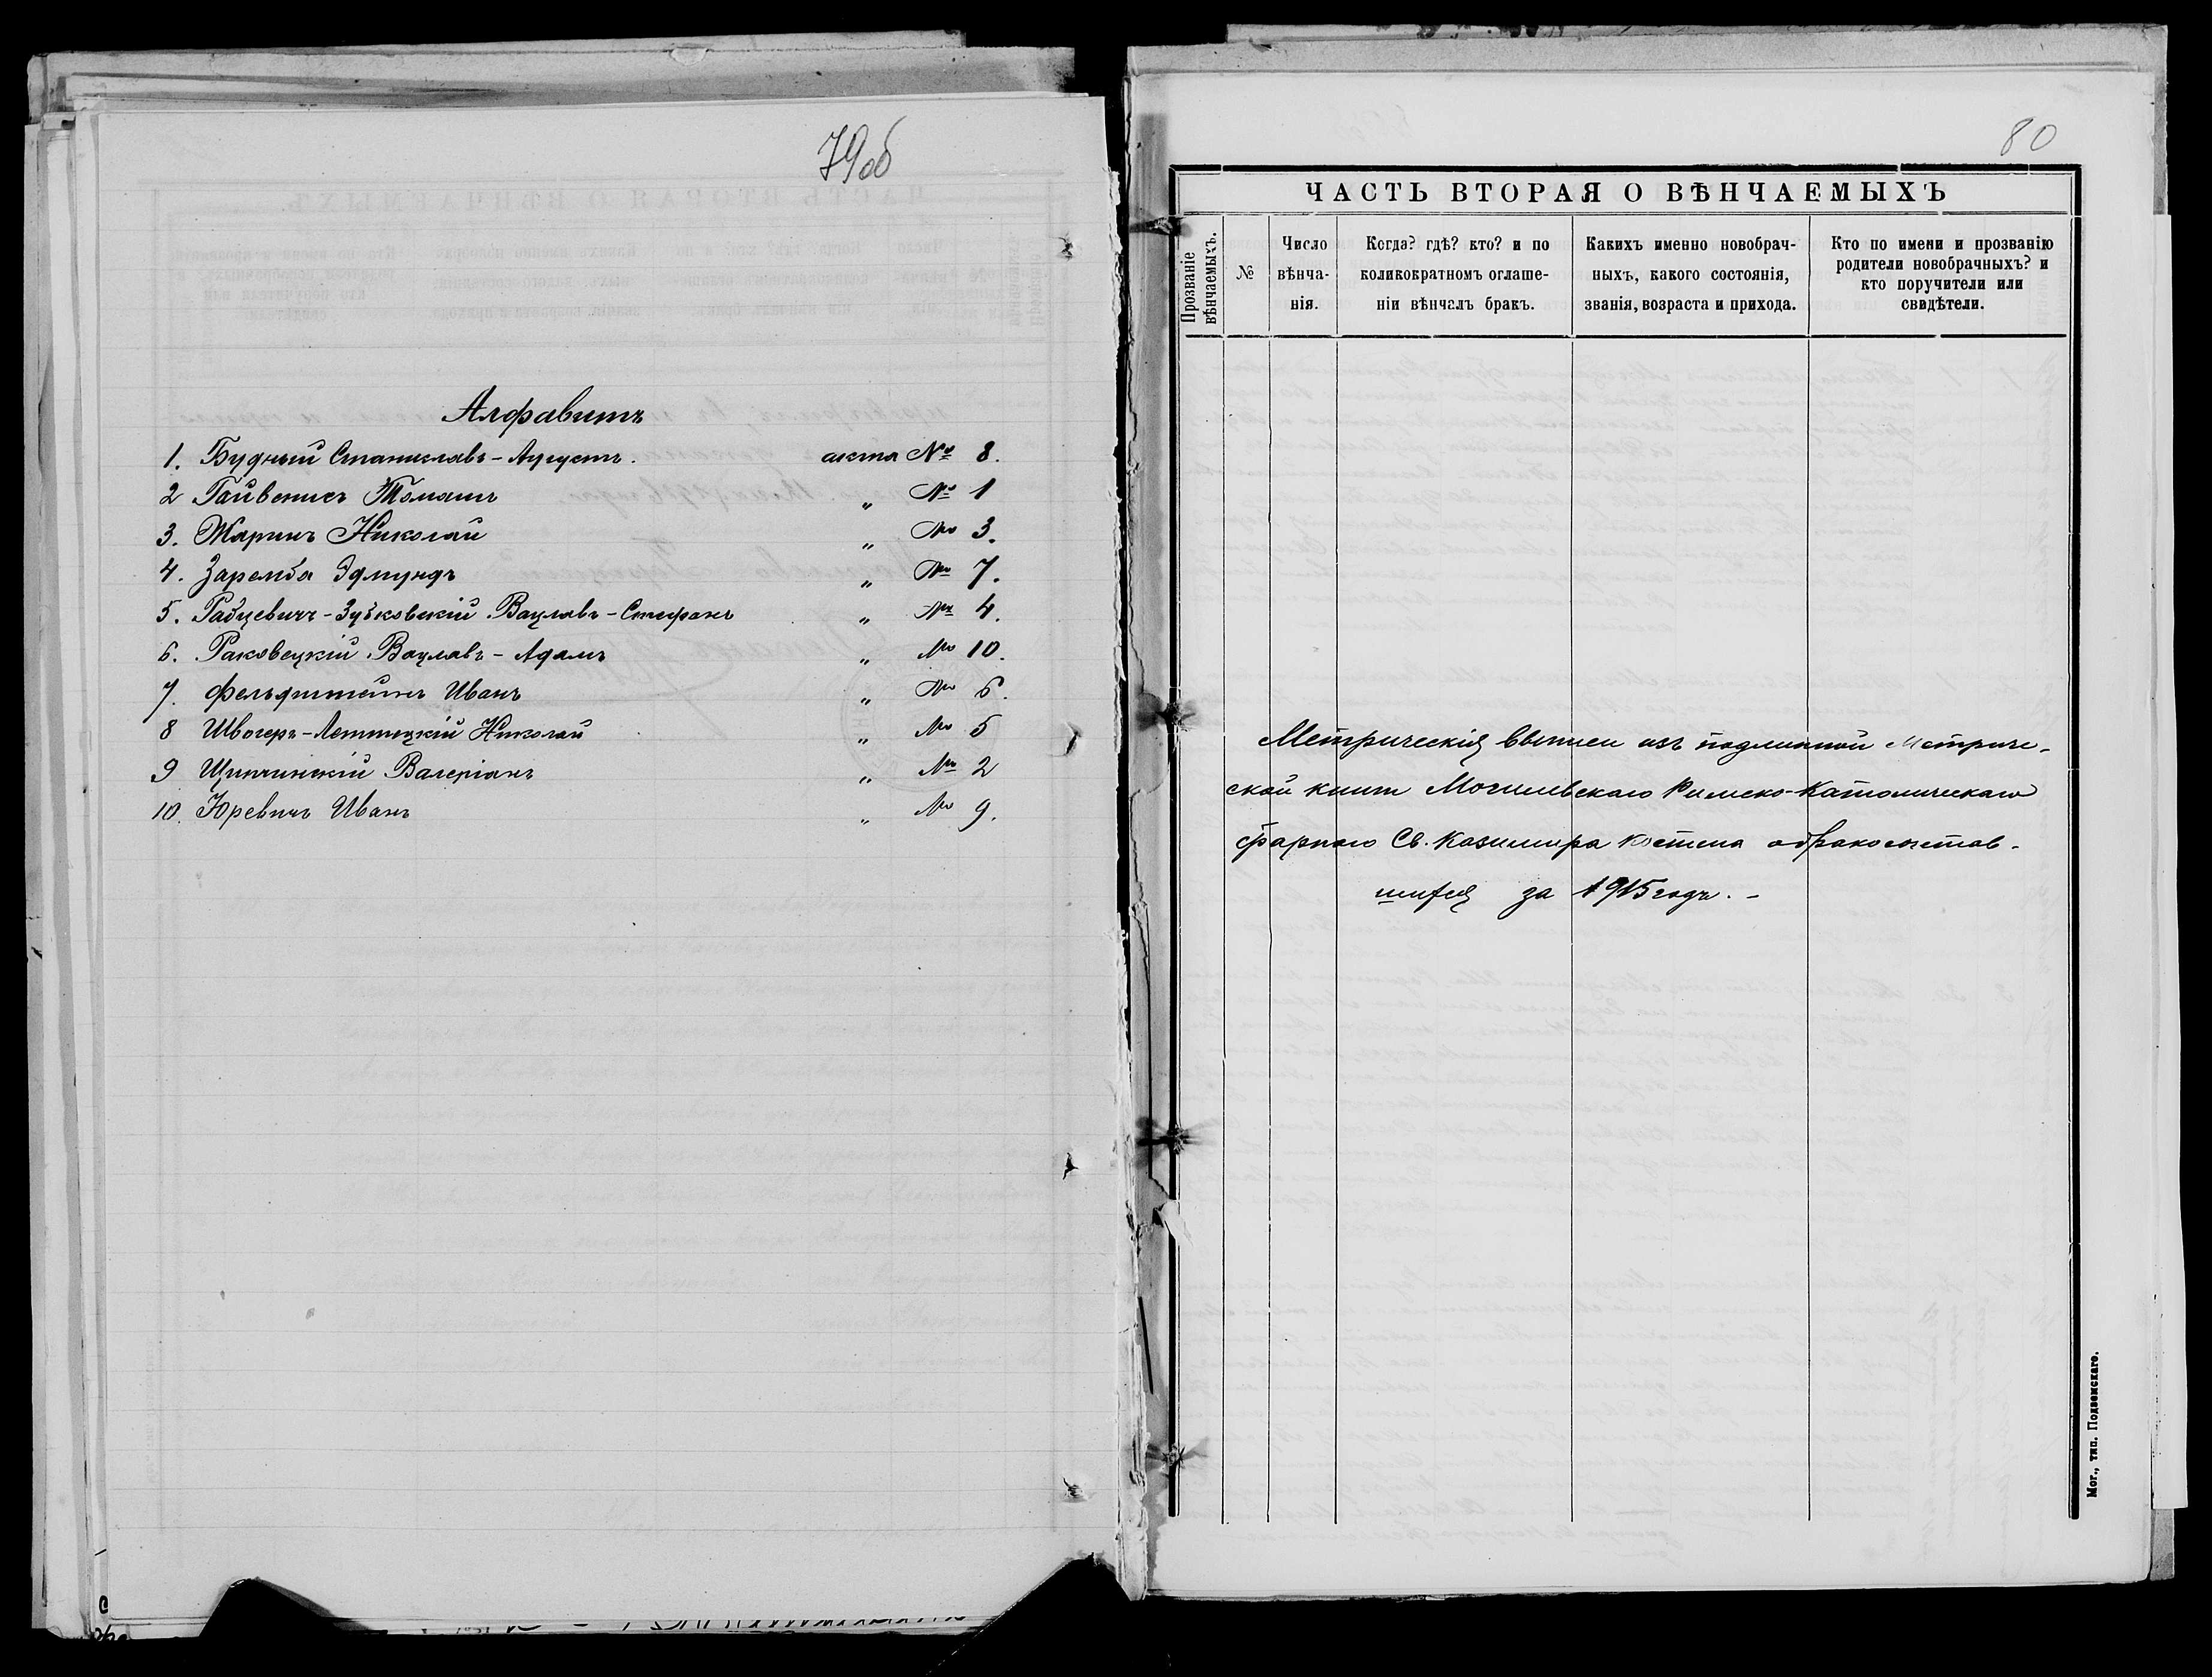 79об
Алфавитъ
1. Будный Станиславъ-Августъ. акта № 8.
2 Гайвенисъ Томашъ " № 1
3. Жаринъ Николай " № 3.
4. Заремба Эдмундъ " № 7.
5. Рабцевичъ-Зубковскій Вацлавъ-Стефанъ " № 4.
6. Раковецкій Вацлавъ-Адамъ " № 10.
7. Фельдштейнъ Иванъ " № 6.
8 Швогеръ-Леттецкій Николай " № 5
9 Щипчинскій Валеріанъ " № 2
10. Юревичъ Иванъ " № 9.
80
ЧАСТЬ ВТОРАЯ О ВѢНЧАЕМЫХЪ
Прозваніе вѣнчаемыхъ.
№
Число
вѣнча-
нія.
Когда? гдѣ? кто? и по
коликократномъ оглаше-
ніи вѣнчалъ бракъ.
Какихъ именно новобрач-
ныхъ, какого состоянія,
званія, возраста и прихода.
Кто по имени и прозванію
родители новобрачныхъ? и
кто поручители или
свидѣтели.
Метрическія выписи изъ подлинной Метриче-
ской книги Могилевскаго Римско-Католическаго
фарнаго Св. Казимира костела о бракосочетав-
шихся за 1915 годъ. -
Мог., тип. Подземскаго.